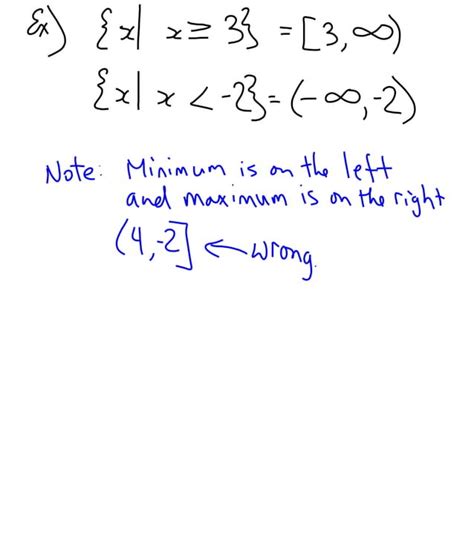 Ex) {x| x ≥ 3} = [3, ∞)
{x| x < -2} = (-∞, -2)
Note: Minimum is on the left
and maximum is on the right
(4, -2] ← wrong.